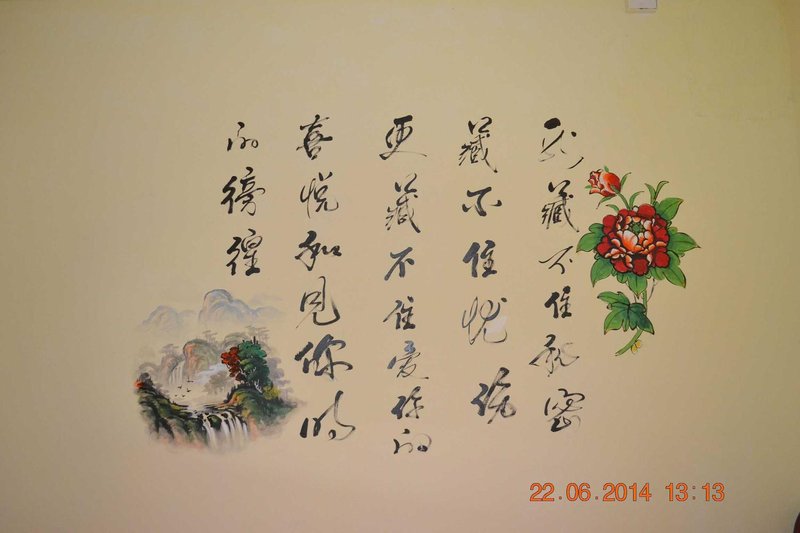 我藏不住秘密
藏不住忧伤
更藏不住愛你的
喜悦和见你时
的徬徨
22.06.2014 13:13